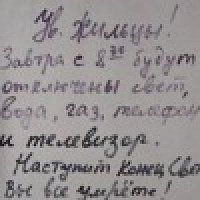 Ув. Жильцы!
Завтра с 8³⁰ будут
отключены свет,
вода, газ, телефон
и телевизор.
Наступит Конец Света
Вы все умрёте!